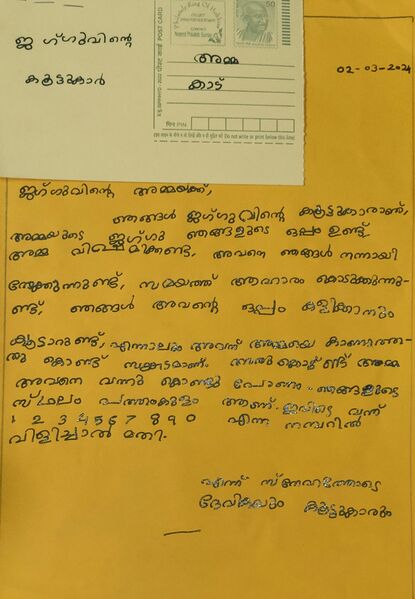 ജഗ്ഗുവിന്റെ
കൂട്ടുകാർ
അമ്മ
കാട്
50
POST CARD
पिन PIN
02-03-2024
ജഗ്ഗുവിന്റെ അമ്മയ്ക്ക്,
ഞങ്ങൾ ജഗ്ഗുവിന്റെ കൂട്ടുകാരാണ്,
അമ്മയുടെ ജഗ്ഗു ഞങ്ങളുടെ ഒപ്പം ഉണ്ട്
അമ്മ വിഷമിക്കണ്ട, അവനെ ഞങ്ങൾ നന്നായി
നോക്കുന്നുണ്ട്, സമയത്ത് ആഹാരം കൊടുക്കുന്നു-
ണ്ട്, ഞങ്ങൾ അവന്റെ ഒപ്പം കളിക്കാനും
കൂട്ടാറുണ്ട്, എന്നാലും അവന് അമ്മയെ കാണാത്ത-
തു കൊണ്ട് സങ്കടമാണ്. അതുകൊണ്ട് അമ്മ
അവനെ വന്നു കൊണ്ടു പോണം. ഞങ്ങളുടെ
സ്ഥലം പത്തംകുളം ആണ്. ഇവിടെ വന്ന്
1 2 3 4 5 6 7 8 9 0 എന്ന നമ്പറിൽ
വിളിച്ചാൽ മതി.
എന്ന് സ്നേഹത്തോടെ
ദേവികയും കൂട്ടുകാരും